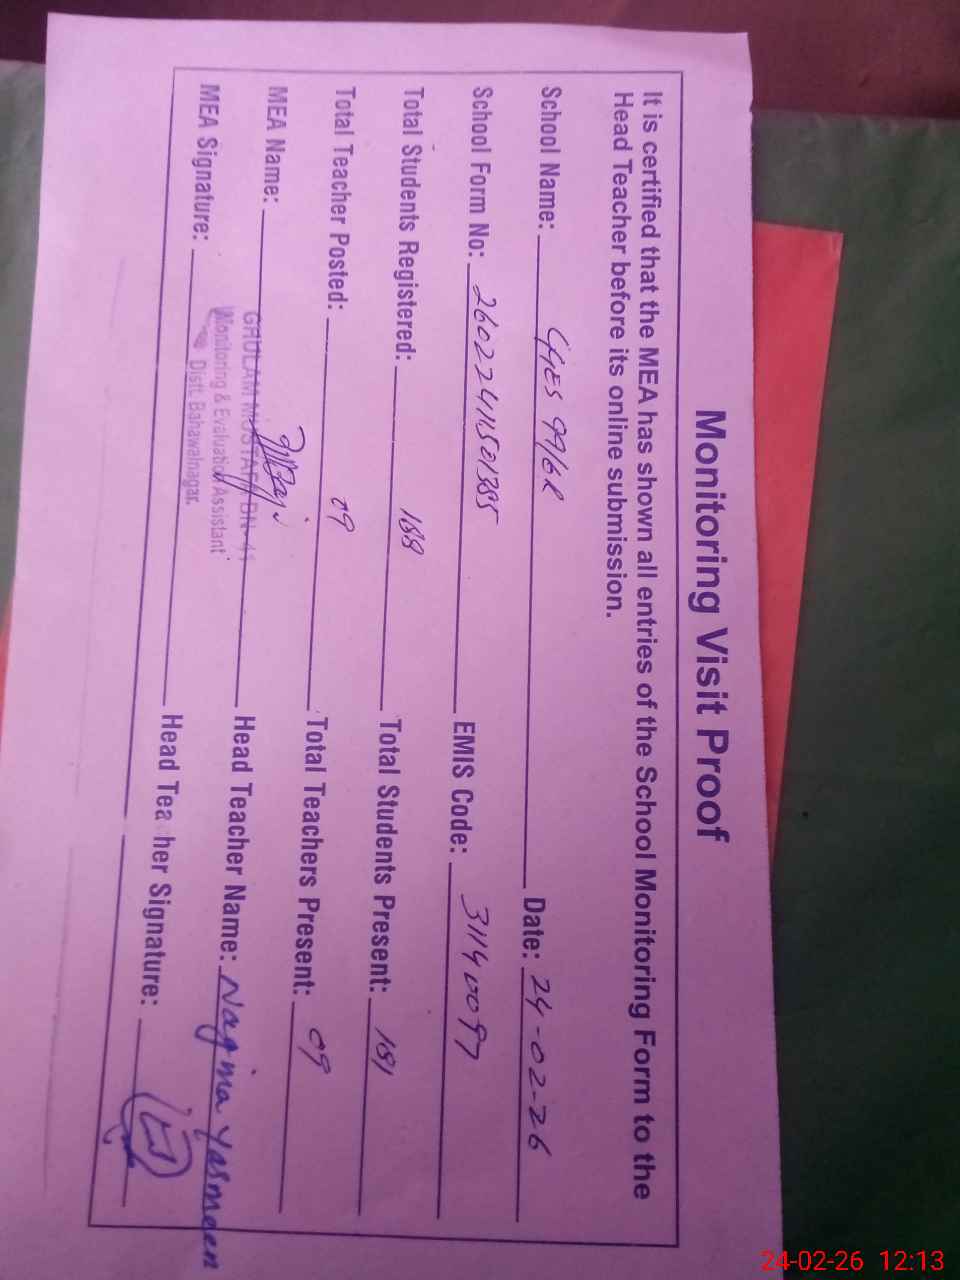 Monitoring Visit Proof
It is certified that the MEA has shown all entries of the School Monitoring Form to the
Head Teacher before its online submission.
School Name: GGES 99/6R Date: 24-02-26
School Form No: 26022411501385 EMIS Code: 31140097
Total Students Registered: 188 Total Students Present: 181
Total Teacher Posted: 09 Total Teachers Present: 09
MEA Name: Head Teacher Name: Nagina Yasmeen
GHULAM MUSTAFA BN-41
Monitoring & Evaluation Assistant
Distt. Bahawalnagar.
MEA Signature: Head Teacher Signature:
24-02-26 12:13